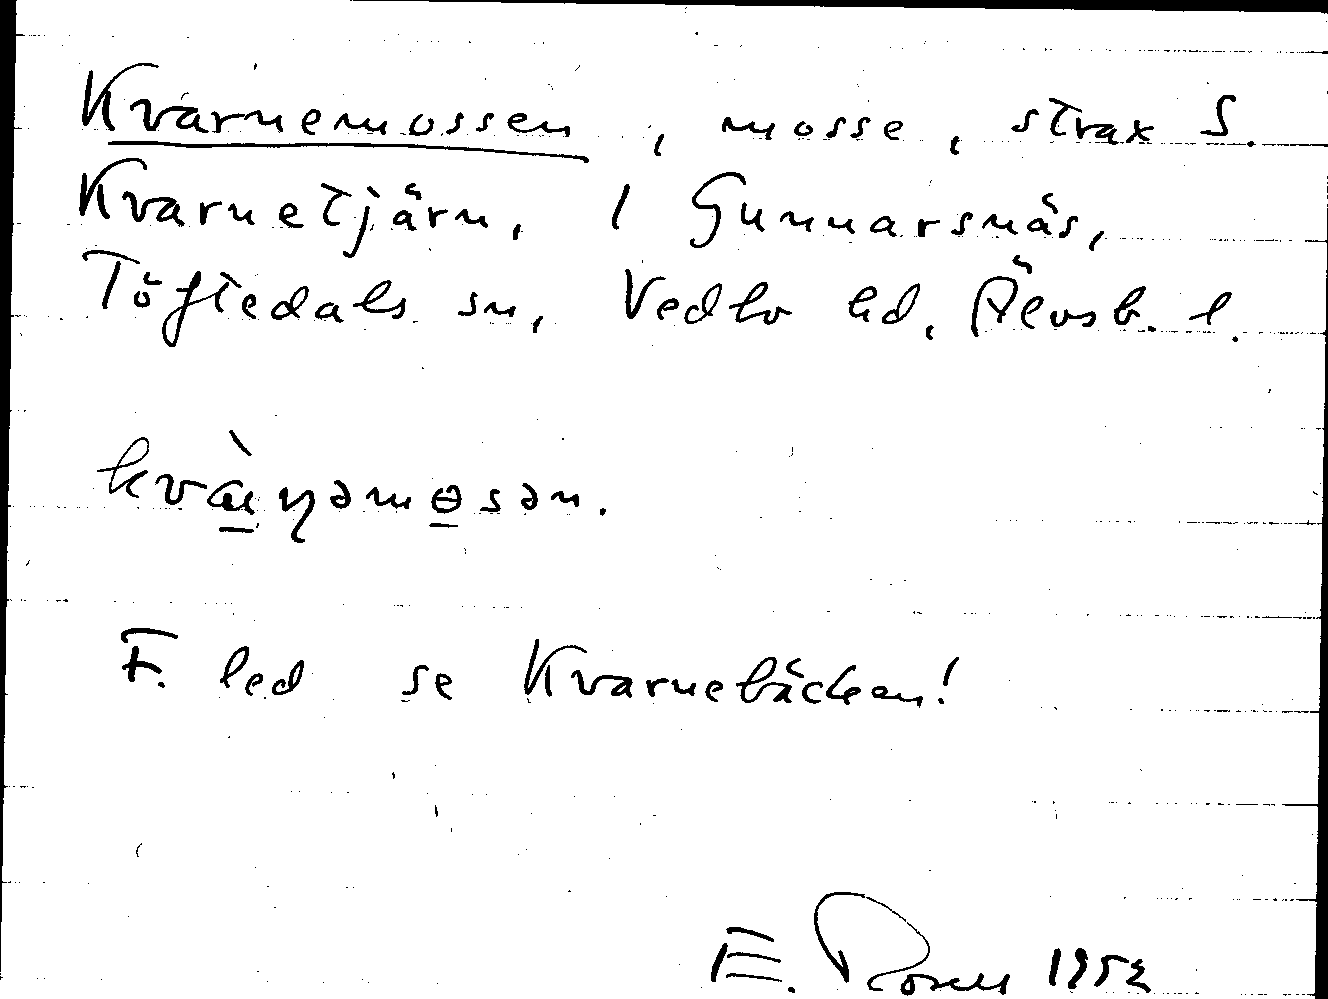 Kvarnemossen, mosse, strax S.
Kvarnetjärn, i Gunnarsnäs,
Töftedals sn, Vedbo hd, Älvsb. l.
kvæ̀ɳəmɵsən.
F. led se Kvarnebäcken!
E. 1952